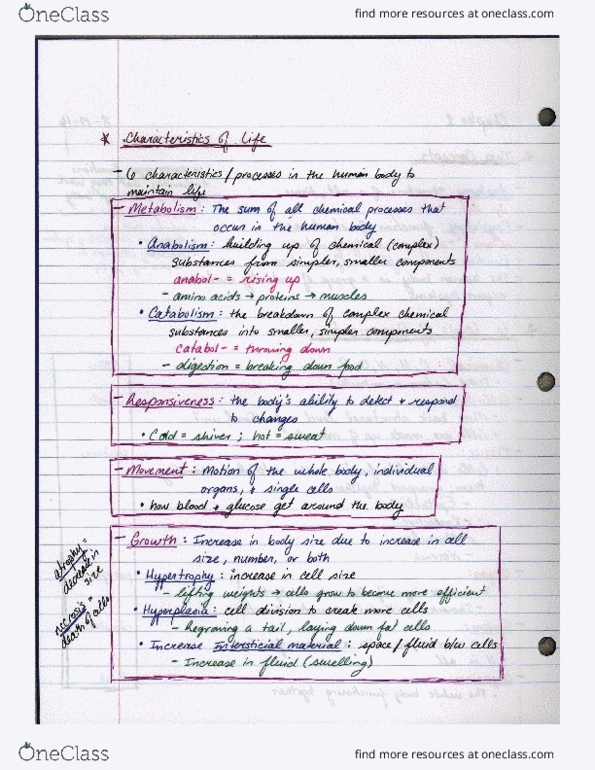 OneClass
find more resources at oneclass.com
* Characteristics of Life
- 6 characteristics/processes in the human body to
maintain life
- Metabolism: The sum of all chemical processes that
occur in the human body
• Anabolism: building up of chemical (complex)
substances from simpler, smaller components
anabol- = rising up
- amino acids → proteins → muscles
• Catabolism: the breakdown of complex chemical
substances into smaller, simpler components
catabol- = throwing down
- digestion = breaking down food
- Responsiveness: the body's ability to detect + respond
to changes
• Cold = shiver; hot = sweat
- Movement: Motion of the whole body, individual
organs, + single cells
• how blood + glucose get around the body
- Growth: Increase in body size due to increase in cell
size, number, or both
• Hypertrophy: increase in cell size
- lifting weights → cells grow to become more efficient
• Hyperplasia: cell division to create more cells
- Regrowing a tail, laying down fat cells
• Increase Intersticial material: space/fluid b/w cells
- Increase in fluid (swelling)
atrophy =
decrease in
size
necrosis =
death of cells
OneClass
find more resources at oneclass.com